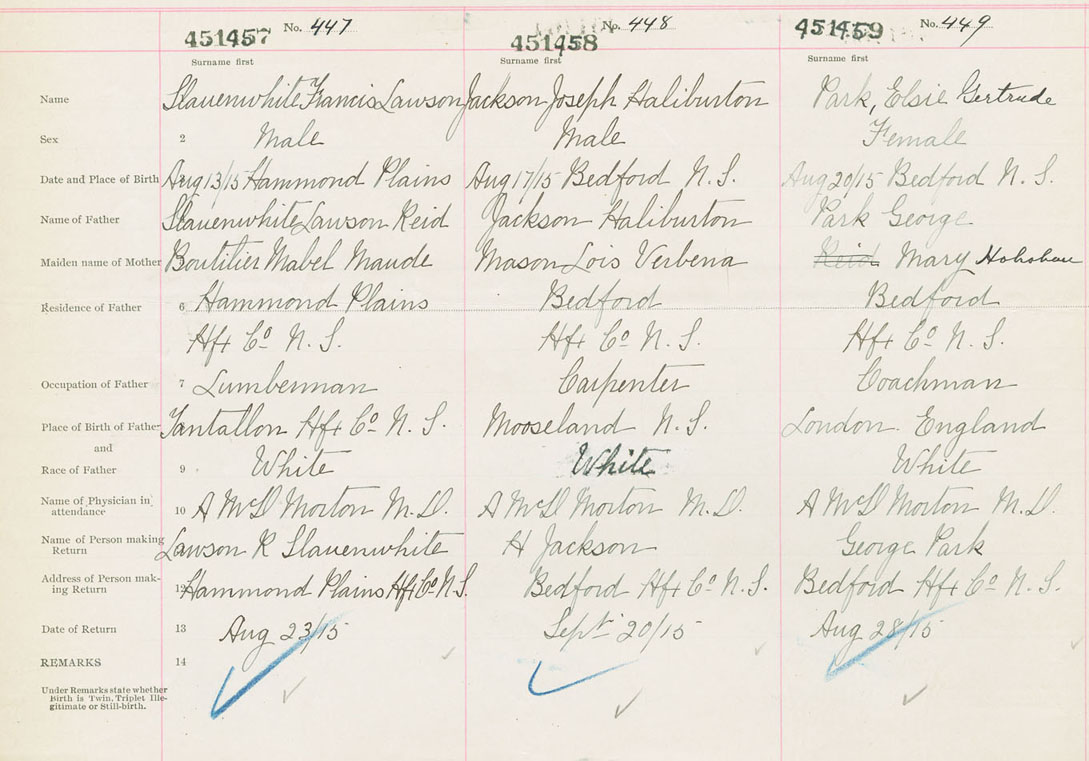 No. 447 No. 448 No. 449
451457 451458 451459
Surname first Surname first Surname first
Name Slauenwhite Francis Lawson Jackson Joseph Haliburton Park, Elsie Gertrude
Sex 2 Male Male Female
Date and Place of Birth Aug 13/15 Hammond Plains Aug 17/15 Bedford N. S. Aug 20/15 Bedford N. S.
Name of Father Slauenwhite Lawson Reid Jackson Haliburton Park George
Maiden name of Mother Boutilier Mabel Maude Mason Lois Verbena Reid Mary
Residence of Father 6 Hammond Plains Bedford Bedford
Hfx Co N. S. Hfx Co N. S. Hfx Co N. S.
Occupation of Father 7 Lumberman Carpenter Coachman
Place of Birth of Father Tantallon Hfx Co N. S. Mooseland N. S. London England
and
Race of Father 9 White White White
Name of Physician in
attendance 10 A McD Morton M. D. A McD Morton M. D. A McD Morton M. D.
Name of Person making
Return Lawson R Slauenwhite H Jackson George Park
Address of Person mak-
ing Return 12 Hammond Plains Hfx Co N. S. Bedford Hfx Co N. S. Bedford Hfx Co N. S.
Date of Return 13 Aug 23/15 Sept 20/15 Aug 28/15
REMARKS 14
Under Remarks state whether
Birth is Twin, Triplet Ille-
gitimate or Still-birth.